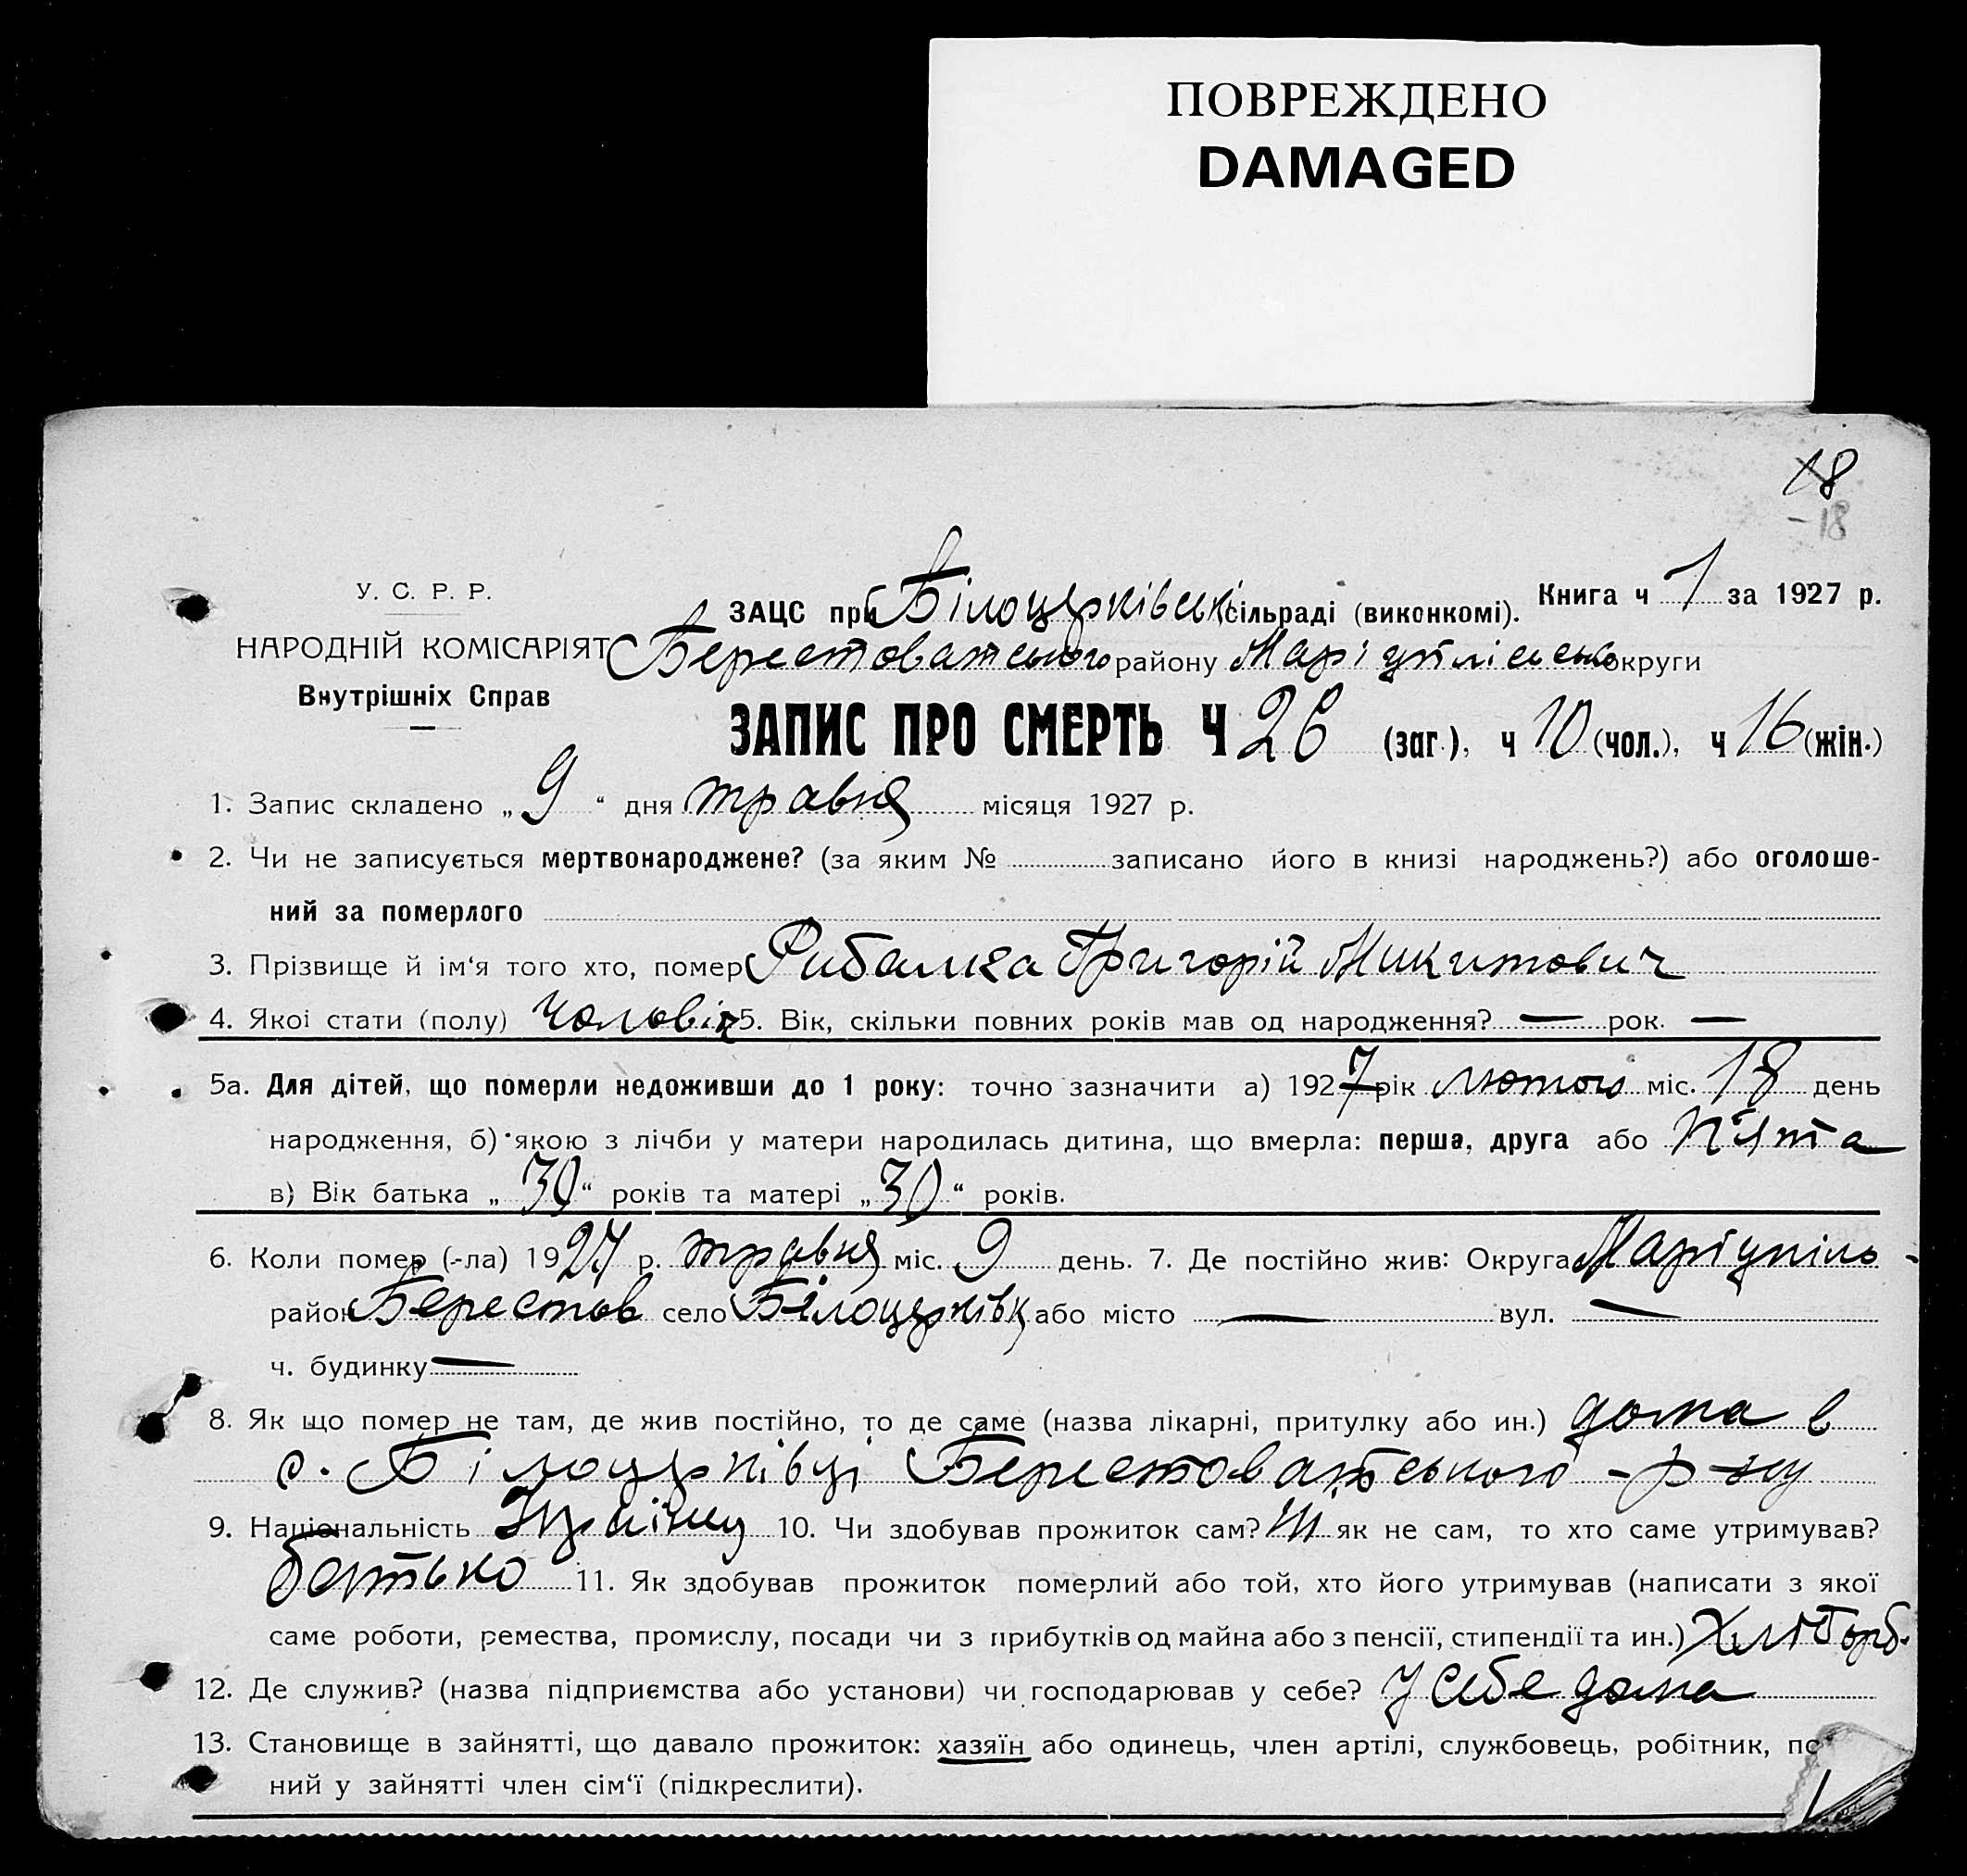 ПОВРЕЖДЕНО
DAMAGED
18
-18
У. С. Р. Р.
НАРОДНІЙ КОМІСАРІЯТ
Внутрішніх Справ
ЗАЦС при Білоцерківськ сільраді (виконкомі). Книга ч 1 за 1927 р.
Берестоватського району Маріупільсько округи
ЗАПИС ПРО СМЕРТЬ Ч 26 (заг.), ч 10 (чол.), ч 16 (жін.)
1. Запис складено „ 9 “ дня травня місяця 1927 р.
2. Чи не записується мертвонароджене? (за яким № записано його в книзі народжень?) або оголоше-
ний за померлого
3. Прізвище й ім‘я того хто, помер Рибалка Григорій Микитович
4. Якої стати (полу) чоловіч 5. Вік, скільки повних років мав од народження? — рок. —
5а. Для дітей, що померли недоживши до 1 року: точно зазначити а) 1927 рік лютого міс. 18 день
народження, б) якою з лічби у матери народилась дитина, що вмерла: перша, друга або п'ята
в) Вік батька „ 30 “ років та матері „ 30 “ років.
6. Коли помер (-ла) 1927 р. травня міс. 9 день. 7. Де постійно жив: Округа Маріупіль-
район Берестов село Білоцерківц або місто — вул. —
ч. будинку —
8. Як що помер не там, де жив постійно, то де саме (назва лікарні, притулку або ин.) дома в
с. Білоцерківці Берестоватського р-ну
9. Національність 10. Чи здобував прожиток сам? Ні як не сам, то хто саме утримував?
батько 11. Як здобував прожиток померлий або той, хто його утримував (написати з якої
саме роботи, ремества, промислу, посади чи з прибутків од майна або з пенсії, стипендії та ин.) Хлібороб.
12. Де служив? (назва підприємства або установи) чи господарював у себе? У себе дома
13. Становище в зайнятті, що давало прожиток: хазяїн або одинець, член артілі, службовець, робітник, по
ний у зайнятті член сім‘ї (підкреслити).